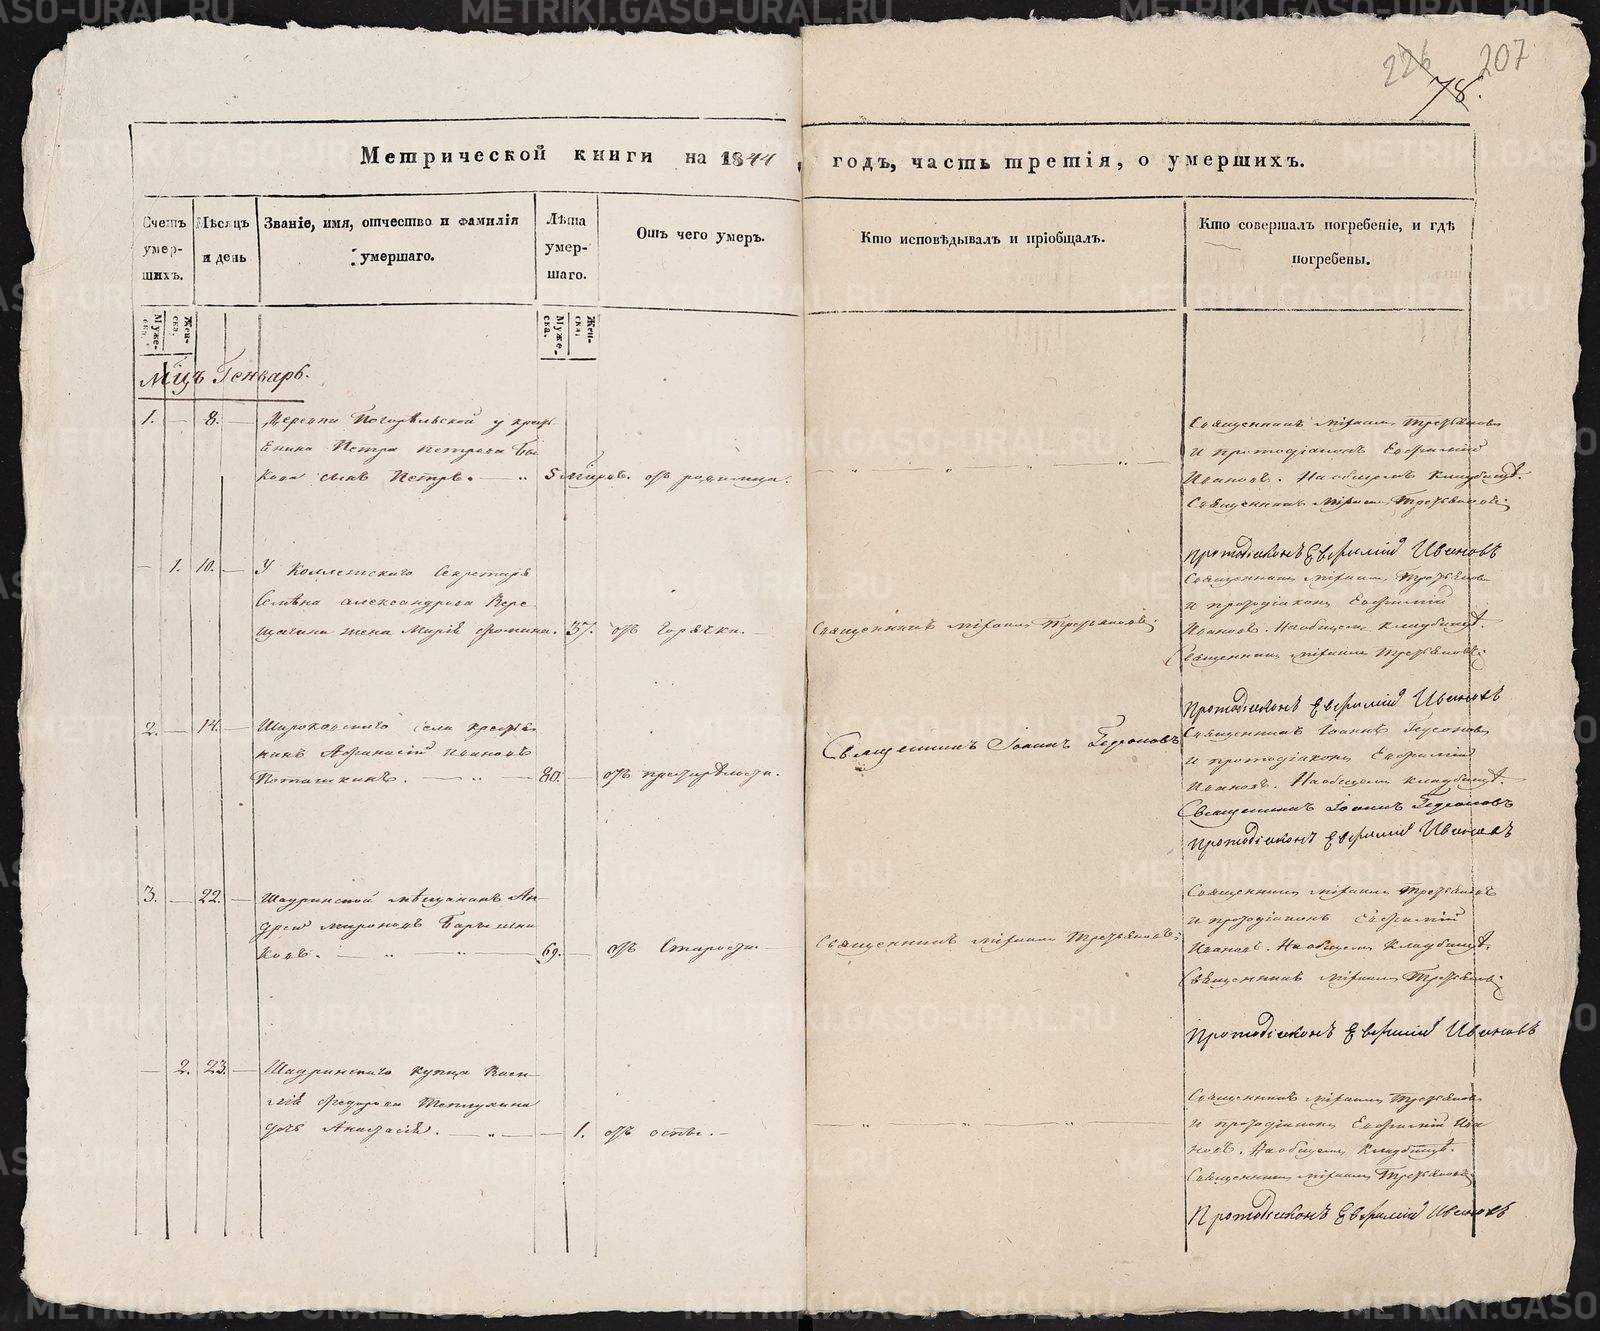 226 207
78.
Метрической книги на 1844 годъ, часть третія, о умершихъ.
Счетъ умер- шихъ.
Мѣсяцъ и день
Званіе, имя, отчество и фамилія умершаго.
Лѣта умер- шаго.
Отъ чего умеръ.
Кто исповѣдывалъ и пріобщалъ.
Кто совершалъ погребеніе, и гдѣ погребены.
Муже- ска.
Жен- ска.
Муже- ска.
Жен- ска.
Мцъ Генварь.
1. — 8. —
Деревни
у кресть
енина Петра Петрова Бы
кова сынъ Петръ.
5
отъ родимца.
Священникъ Михаилъ Третьяковъ
и протодіаконъ Евфимій
Ивановъ. На общемъ кладбищѣ.
Священникъ Михаилъ Третьяковъ
Протодіаконъ Евфимій Ивановъ
— 1. 10. —
У Коллежскаго Секретаря
Семена Александрова Вере
щагина жена Марія Фомина.
37.
отъ горячки. —
Священникъ Михаилъ Третьяковъ
Священникъ Михаилъ Третьяковъ
и протодіаконъ Евфимій
Ивановъ. На общемъ кладбищѣ.
Священникъ Михаилъ Третьяковъ
Протодіаконъ Евфимій Ивановъ
2. — 14. —
Широковскаго села крестья
нинъ Афанасій Ивановъ
Поташкинъ.
80. —
отъ престарѣлости.
Священникъ Іоаннъ Гедеоновъ
Священникъ Іоаннъ Гедеоновъ
и протодіаконъ Евфимій
Ивановъ. На общемъ кладбищѣ.
Священникъ Іоаннъ Гедеоновъ
Протодіаконъ Евфимій Ивановъ
3. — 22. —
Шадринской мѣщанинъ Ан
дрей Мироновъ Барышни
ковъ.
69. —
отъ старости. —
Священникъ Михаилъ Третьяковъ
Священникъ Михаилъ Третьяковъ
и протодіаконъ Евфимій
Ивановъ. На общемъ кладбищѣ.
Священникъ Михаилъ Третьяковъ
Протодіаконъ Евфимій Ивановъ
— 2. 23. —
Шадринскаго купца Васи
лія Федорова
дочь Анастасія.
— 1.
отъ оспы. —
Священникъ Михаилъ Третьяковъ
и протодіаконъ Евфимій Ива
новъ. На общемъ кладбищѣ.
Священникъ Михаилъ Третьяковъ
Протодіаконъ Евфимій Ивановъ
METRIKI.GASO-URAL.RU